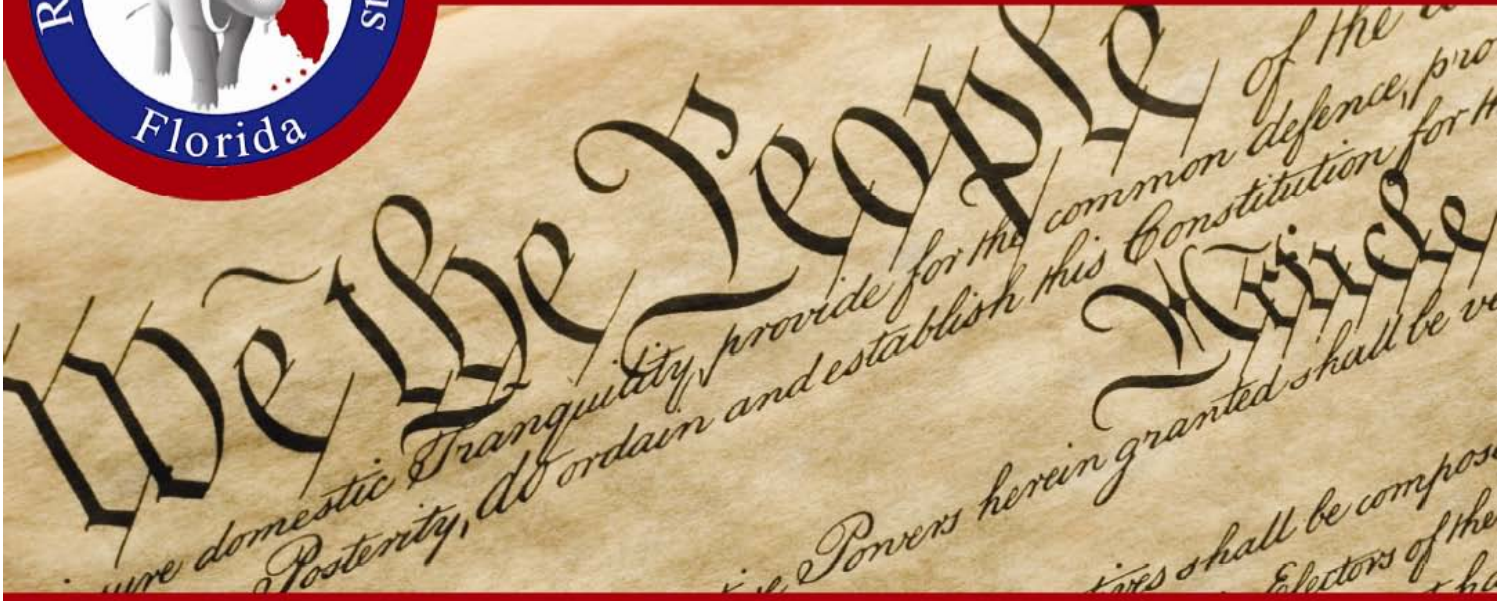 Florida
We the People of the
sure domestic Tranquility, provide for the common defence, pro
Posterity, do ordain and establish this Constitution for th
Article
Powers herein granted shall be ve
tives shall be compos
Electors of the